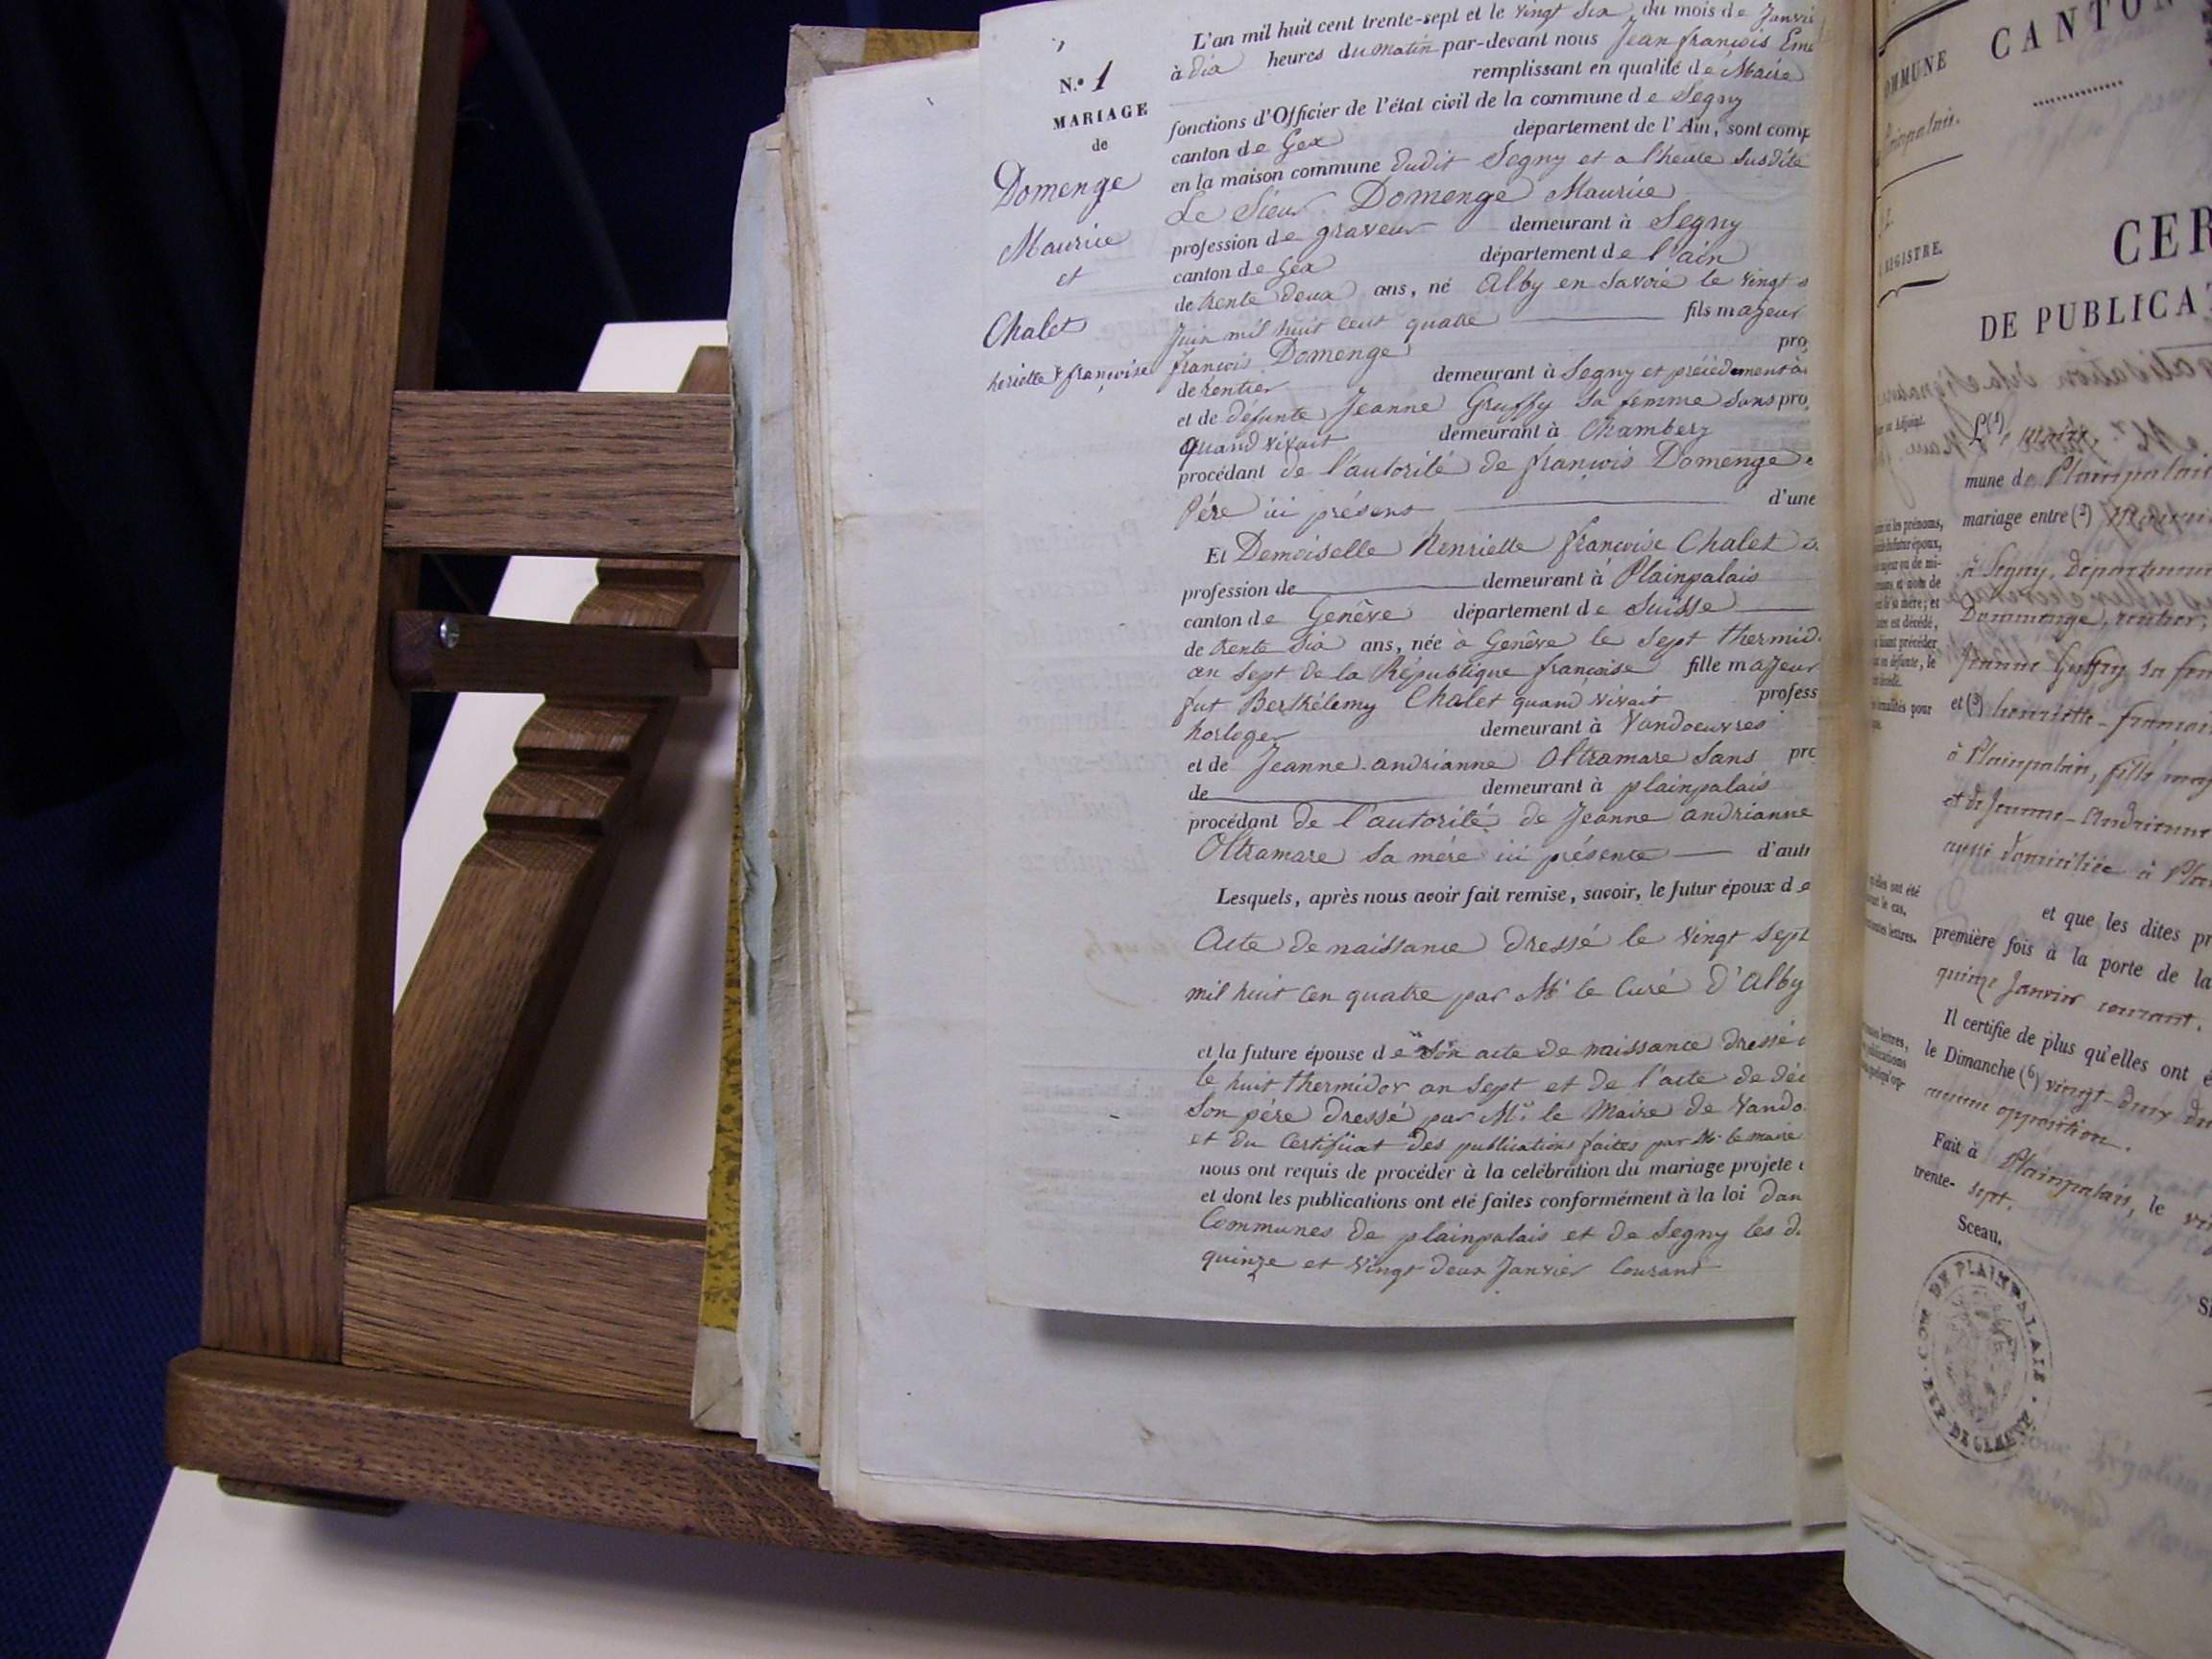 L'an mil huit cent trente-sept et le vingt six du mois de Janvi
à dix heures du matin par-devant nous Jean françois Eme
remplissant en qualité de Maire
fonctions d'Officier de l'état civil de la commune de Segny
canton de Gex département de l'Ain, sont comp
en la maison commune dudit Segny et a l'heure susdite
Le Sieur Domenge Maurice
profession de graveur demeurant à Segny
canton de Gex département de l'ain
de trente deux ans, né Alby en Savoie le vingt s
Juin mil huit cent quatre fils majeur
françois Domenge pro
de rentier demeurant à Segny et précédement à
et de défunte Jeanne Gruffy sa femme sans pro
quand vivait demeurant à Chambery
procédant de l'autorité de françois Domenge
Père ici présent d'une
Et Demoiselle Henriette françoise Chalet
profession de demeurant à Plainpalais
canton de Genève département de Suisse
de trente six ans, née à Genève le Sept thermid
an Sept de la République française fille majeur
fut Berthélemy Chalet quand vivait profess
horloger demeurant à Vandoeuvres
et de Jeanne andrianne Oltramare Sans pro
de demeurant à plainpalais
procédant de l'autorité de Jeanne andrianne
Oltramare sa mére ici présente d'aut
Lesquels, après nous avoir fait remise, savoir, le futur époux de
Acte de naissance dressé le vingt sept
mil huit cen quatre par Mr le Curé d'Alby
et la future épouse de son acte de naissance dressé
le huit thermidor an Sept et de l'acte de déc
Son pére dressé par Mr le Maire de Vando
et du Certificat des publications faites par Mr le maire
nous ont requis de procéder à la celébration du mariage projeté
et dont les publications ont eté faites conformément à la loi dan
Communes de plainpalais et de Segny les d
quinze et vingt deux Janvier Courant
N.º 1
MARIAGE
de
Domenge
Maurice
et
Chalet
heriette françoise
OMMUNE CANTON
Plainpalais.
REGISTRE.
CER
DE PUBLICA
Le maire
mune de Plainpalais
mariage entre (2) Maurice
à Segny, département
Dommenge, rentier,
Jeanne Guffry, sa fem
et (3) henriette-françoi
à Plainpalais, fille maj
et de Jeanne-Andrienne
aussi domiciliée à Pla
et que les dites pr
première fois à la porte de la
quinze Janvier courant.
Il certifie de plus qu'elles ont é
le Dimanche (6) vingt-deux du
aucune opposition.
Fait à Plainpalais, le vi
trente- sept.
Sceau.
COM DE PLAINPALAIS
REP. DE GENEVE